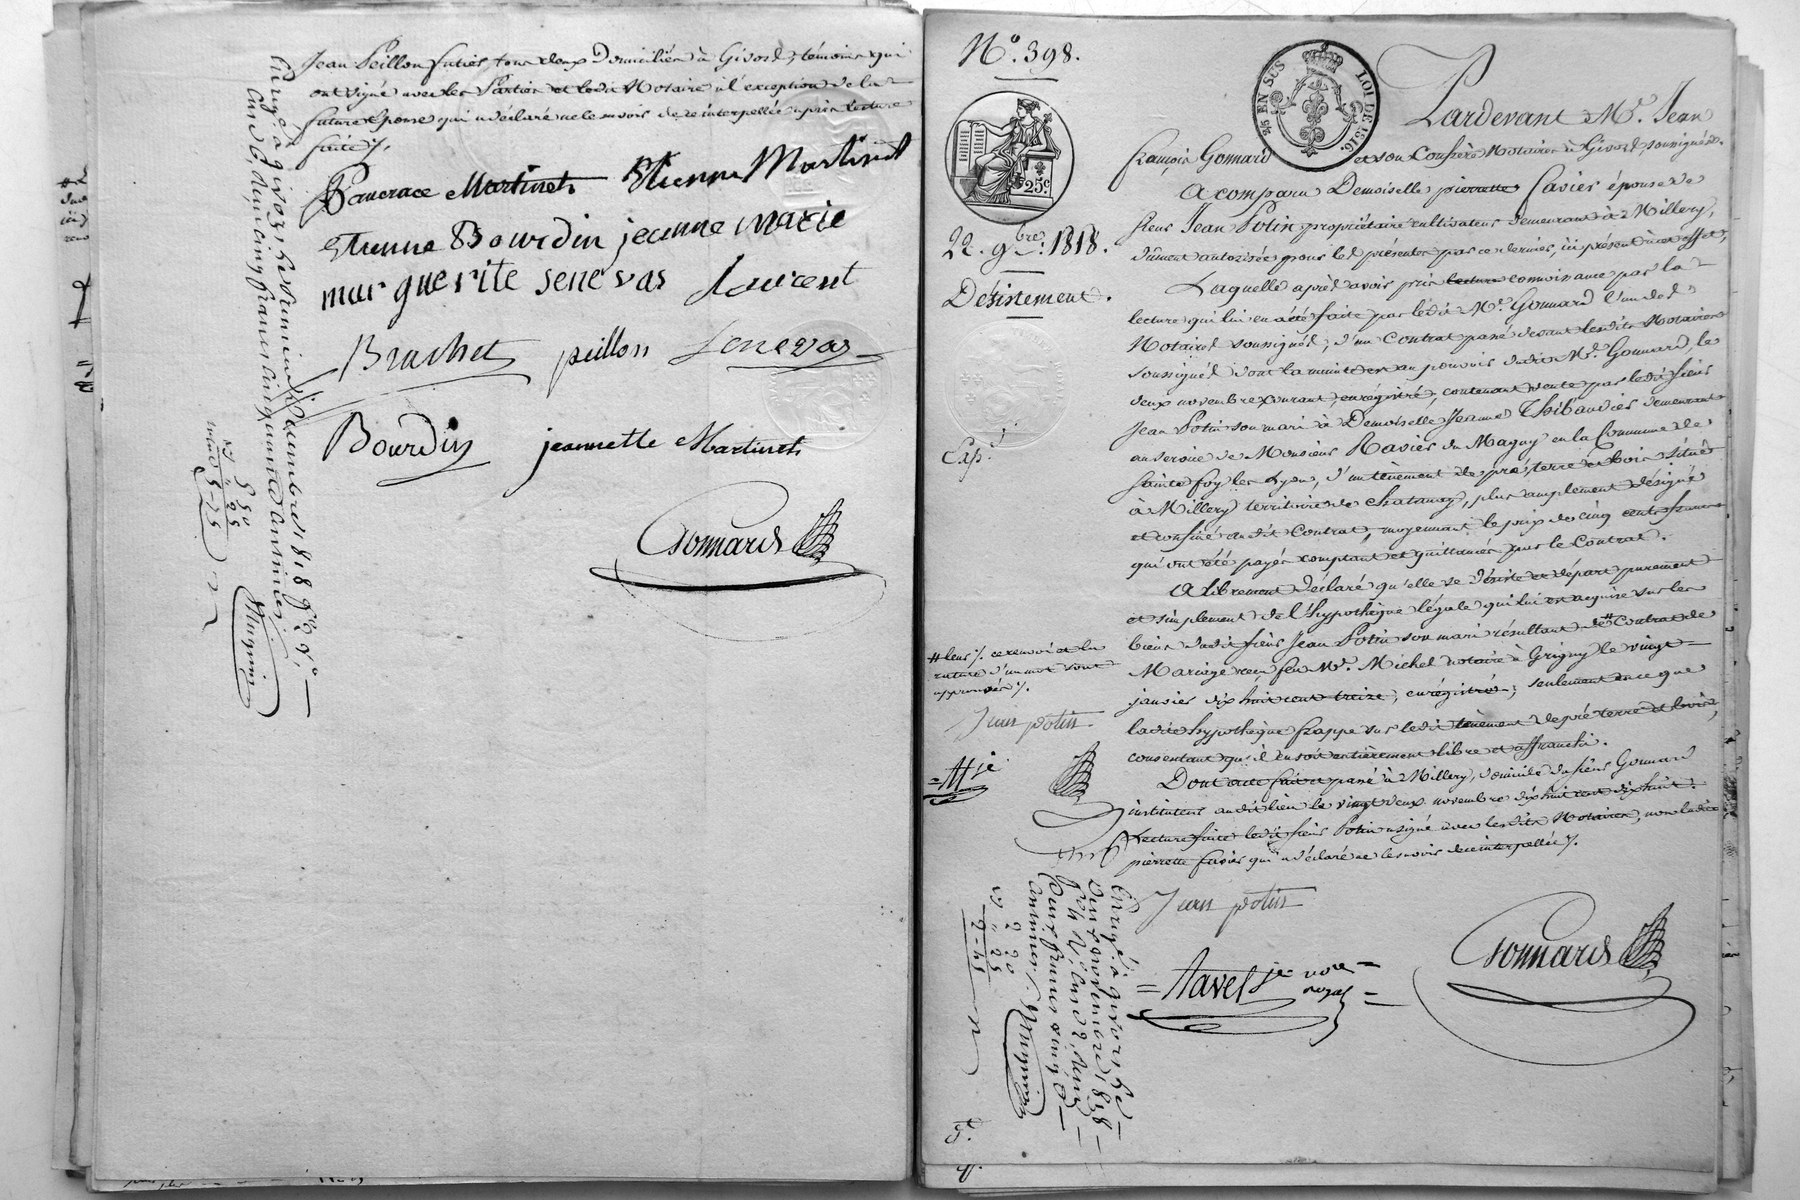 Jean Peillon futier, tous deux Domiciliés à Givors, témoins qui
ont signé avec les Parties et ledit Notaire à l'exception de la
future Epouse qui a déclaré ne le savoir de ce interpellée après lecture
faite /.
Pancrace Martinet Etienne Martinet
etienne Bourdin jeanne marie
marguerite senevas Laurent
Brachet peillon Senevas
Bourdin jeannette Martinet
Gonnard
N.º 398.
25 EN SUS LOI DE 1816.
25c
22. 9bre. 1818.
Désistement.
Exp.
Pardevant Mr. Jean
françois Gonnard et son Confrère Notaires à Givors, soussignés.
A comparu Demoiselle pierrette favier épouse de
sieur Jean Potin propriétaire cultivateur demeurant à Millery,
dûment autorisée pour les présentes par ce dernier, ici présent à cet effet,
Laquelle après avoir pris lecture connoissance par la
lecture qui lui en a été faite par ledit Mr. Gonnard l'un des
Notaires soussignés, d'un Contrat passé devant lesdits Notaires
soussignés dont la minute est au pouvoir dudit Mr. Gonnard, le
deux novembre courant, enrégistré, contenant vente par ledit sieur
Jean Potin son mari à Demoiselle Jeanne Thibaudier demeurant
au service de Monsieur Ravier du Magny en la Commune de
Sainte foy les Lyon, d'un tènement de pré, terre et bois situés
à Millery territoire de Chatanay, plus amplement désigné
et confiné audit Contrat, moyennant le prix de cinq cents francs
qui ont été payés comptant et quittancés par le Contrat.
A librement déclaré qu'elle se désiste et départ purement
et simplement de l'hypothèque légale qui lui est acquise sur les
biens dudit sieur Jean Potin son mari résultant de # Contrat de
Mariage reçu feu Mr. Michel notaire à Grigny le vingt
janvier dix huit cent treize, enrégistré; seulement en ce que
ladite hypothèque frappe sur ledit tènement de pré terre et bois,
consentant qu'il en soit entièrement libre et affranchi.
Dont acte fait et passé à Millery, domicile du sieur Gonnard
instituteur audit lieu le vingt deux novembre dix huit cent dix huit.
Lecture faite ledit sieur Potin a signé avec lesdits Notaires, non ladite
pierrette favier qui a déclaré ne le savoir de ce interpellée /.
# leur /. ce renvoi et la
rature d'un mot sont
approuvés /.
Jean potin
Jean potin
= Tavel je nore =
royal =
Gonnard